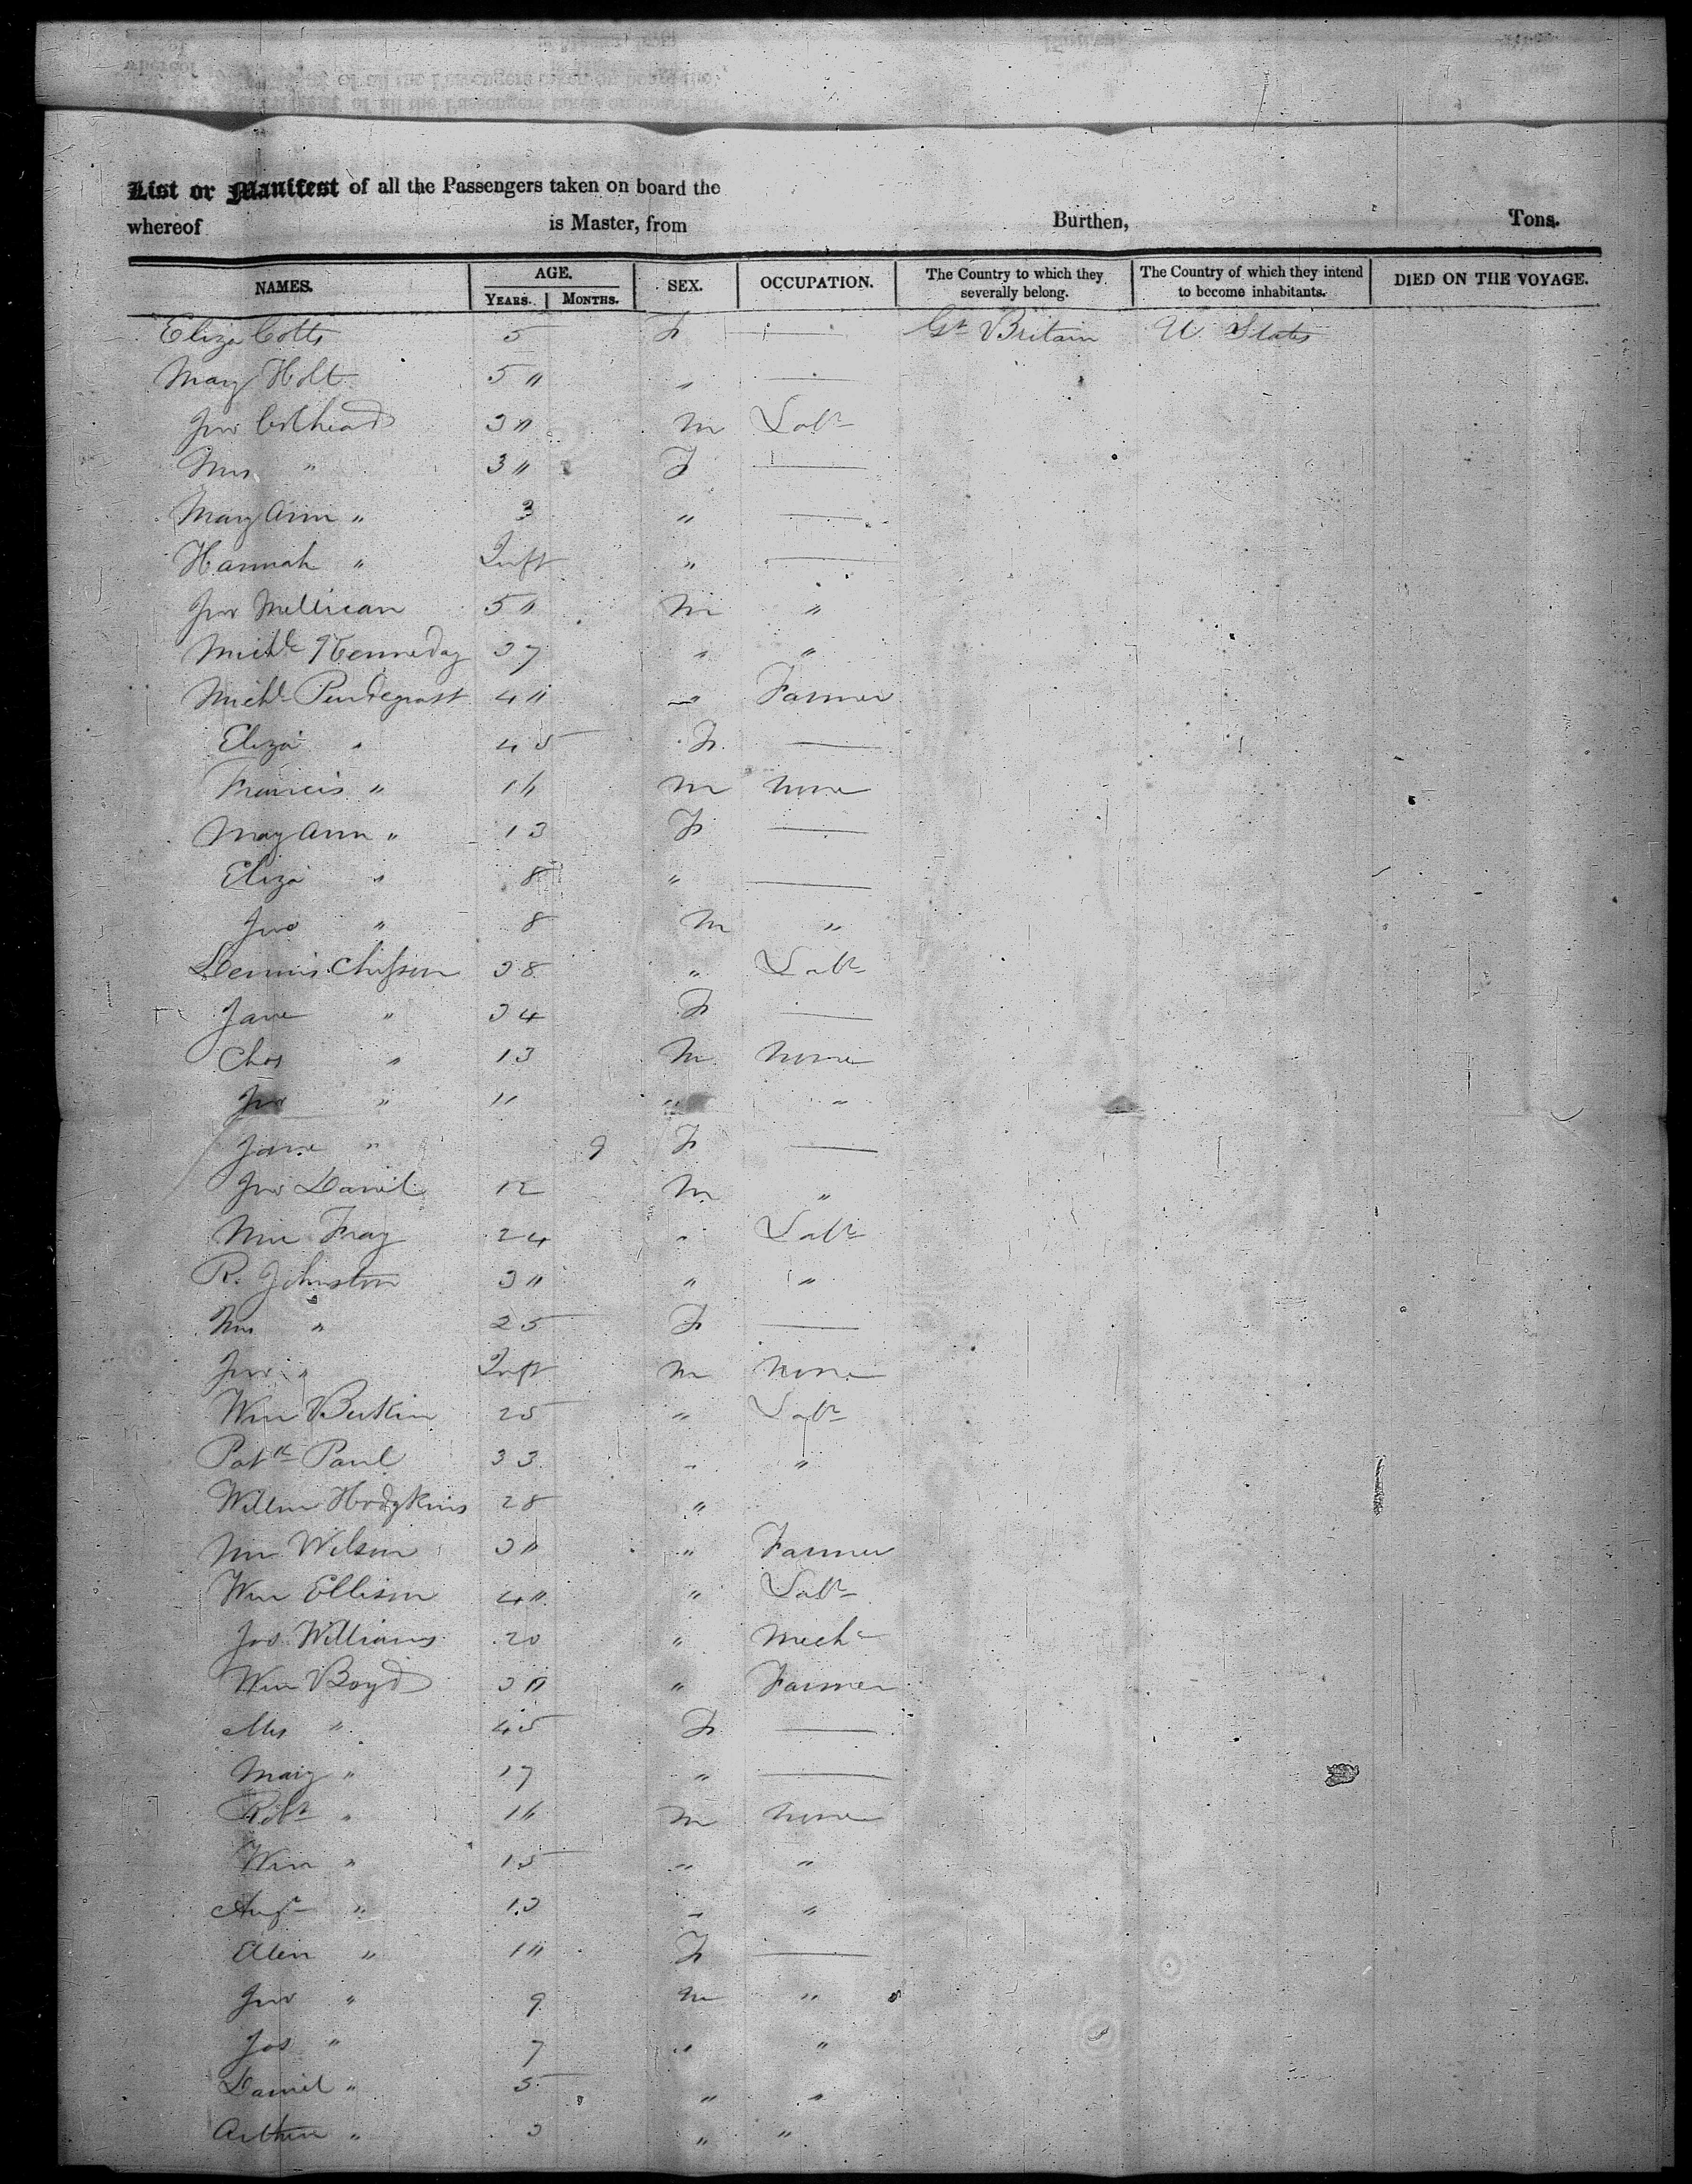 List or Manifest of all the Passengers taken on board the
whereof is Master, from Burthen, Tons.
NAMES. AGE. SEX. OCCUPATION. The Country to which they severally belong. The Country of which they intend to become inhabitants. DIED ON THE VOYAGE.
YEARS. MONTHS.
Eliza Cotts 5 F — Gt Britain U States
Mary Holt 5 " " —
Jno 3 " M Labr
Mrs " 3 " F —
Mary Ann " 3 " —
Hannah " Inft " —
Jno Millican 5 " M "
Michl Kennedy 37 " "
Michl Pendegrast 4 " " Farmer
Eliza " 45 F —
Francis " 16 M none
Mary Ann " 13 F —
Eliza " 8 " —
Jno " 8 M "
Dennis 38 " Labr
Jane " 34 F —
Chas " 13 M none
Jno " 11 " "
Jane " 9 F —
Jno Daniel 12 M "
24 " Labr
R. Johnston 3 " " "
Mrs " 25 F —
Jno " Inft M none
Wm 25 " Labr
Patk Paul 33 " "
Willm Hodgkins 28 "
Wilson 3 " " Farmer
Wm Ellison 4 " " Labr
Jno Williams 20 " Mechc
Wm Boyd 3 " " Farmer
Mrs " 45 F —
Mary " 17 " —
Robt " 16 M none
Wm " 15 " "
" 13 " "
Ellen " 1 " F —
Jno " 9 M "
Jos " 7 " "
Daniel " 5 " "
Arthur " 3 " "